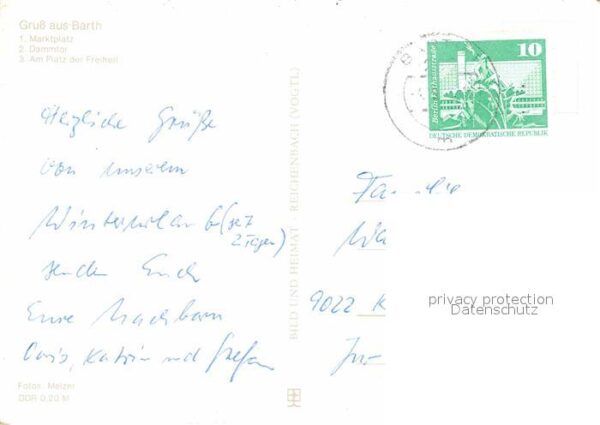 Gruß aus Barth
1. Marktplatz
2. Dammtor
3. Am Platz der Freiheit
10
Berlin, Rathausstraße
DEUTSCHE DEMOKRATISCHE REPUBLIK
Herzliche Grüße
von unserem
Winterurlaub (seit 7
Tagen)
senden Euch
Eure Nachbarn
Doris, Katrin und Stefan
BILD UND HEIMAT · REICHENBACH (VOGTL)
Familie
9022 K
privacy protection
Datenschutz
Fotos: Melzer
DDR 0,20 M